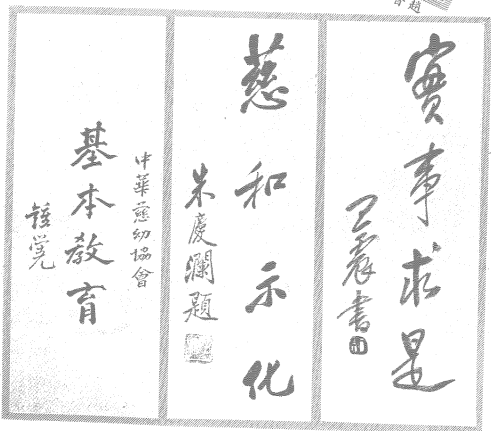 實事求是
王震書
慈和示化
朱慶瀾題
中華慈幼協會
基本教育